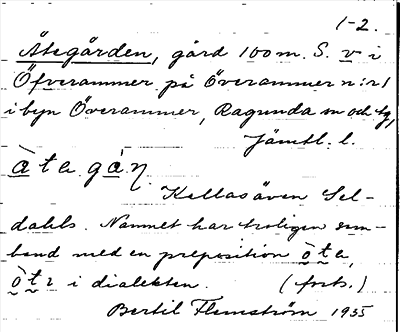 1-2.
Åtegården, gård 100 m. S. v i
Öfverammer på Överammer nr 1
i byn Överammer, Ragunda sn och tg,
Jämtl. l.
àtagá̀ŋ.
Kallas även Sel-
dahls. Namnet har troligen sam-
band med en preposition òta,
òtı i dialekten. (forts.)
Bertil Flemström 1935